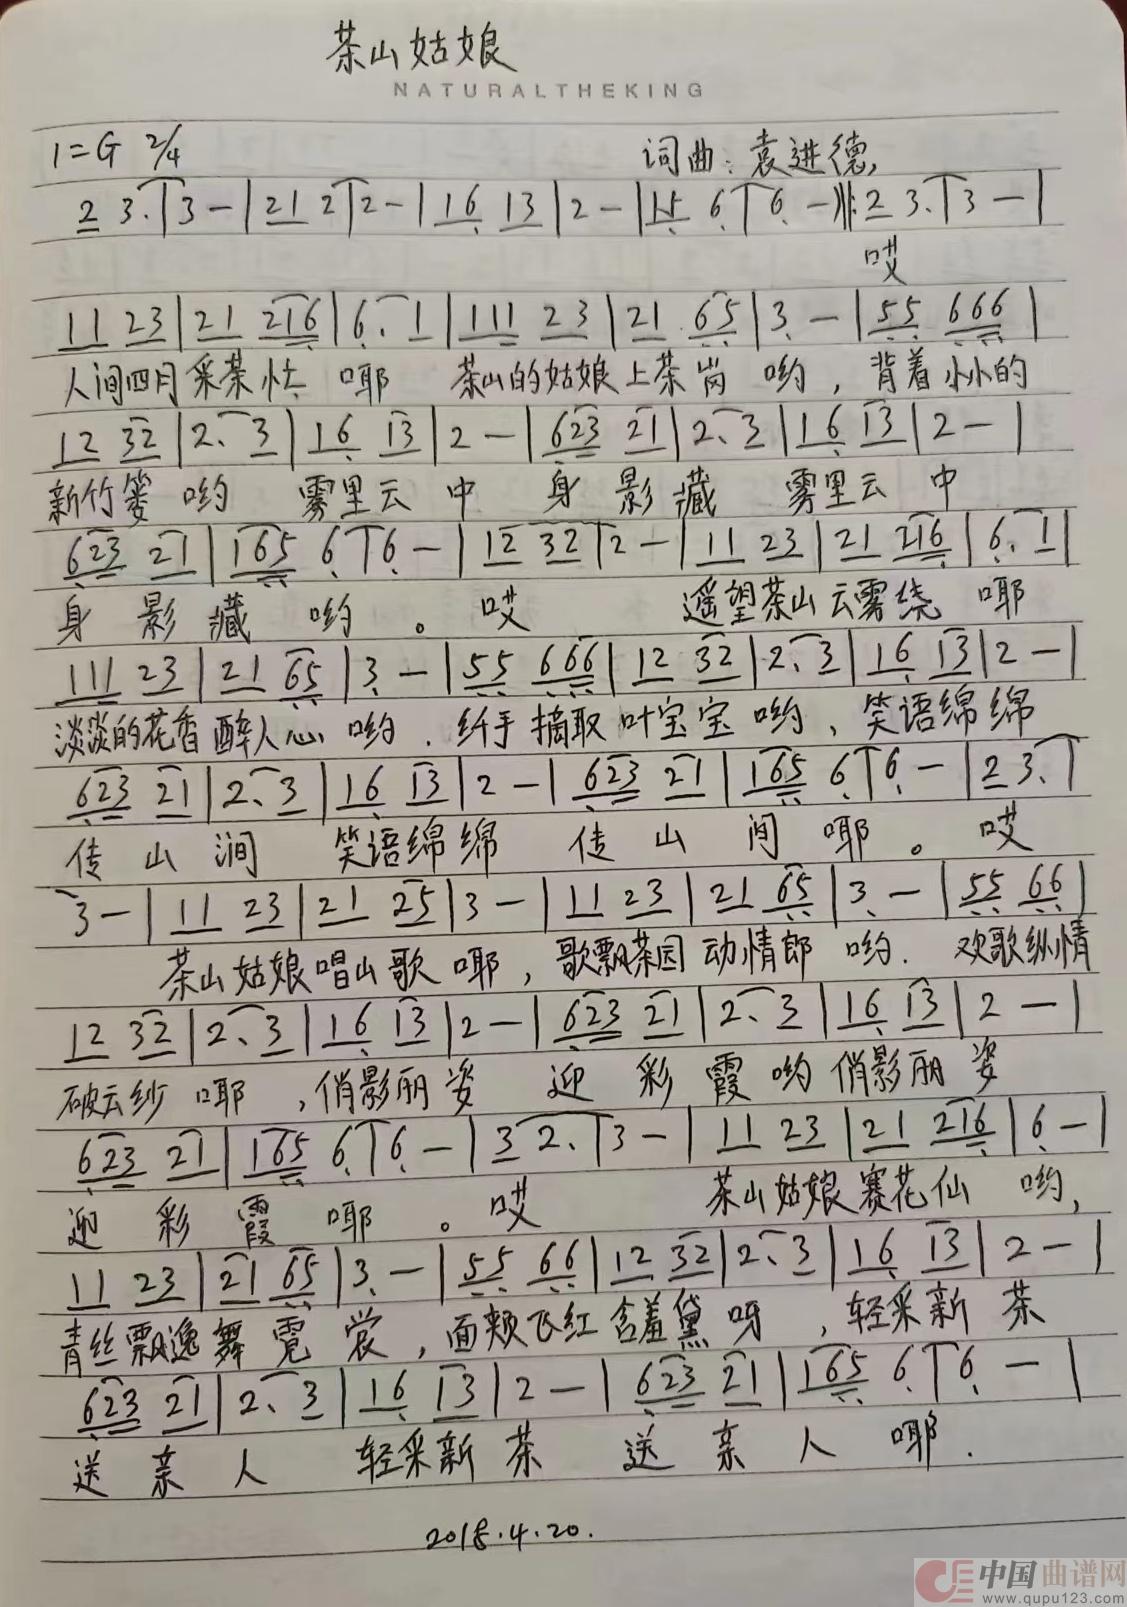 茶山姑娘
NATURALTHEKING
1=G 2/4 词曲：袁进德
2 3. | 3 - | 21 2 | 2 - | 16 13 | 2 - | 15 6 | 6 - ‖: 2 3. | 3 - |
哎
11 23 | 21 216 | 6. 1 | 111 23 | 21 65 | 3 - | 55 666 |
人间四月采茶忙 耶 茶山的姑娘上茶岗 哟，背着小小的
12 32 | 2. 3 | 16 13 | 2 - | 623 21 | 2. 3 | 16 13 | 2 - |
新竹篓 哟 雾里云 中 身 影 藏 雾里云 中
623 21 | 165 6 | 6 - | 12 32 | 2 - | 11 23 | 21 216 | 6. 1 |
身 影 藏 哟 。哎 遥望茶山云雾绕 耶
111 23 | 21 65 | 3 - | 55 666 | 12 32 | 2. 3 | 16 13 | 2 - |
淡淡的花香醉人心 哟．纤手摘取叶宝宝 哟，笑语绵 绵
623 21 | 2. 3 | 16 13 | 2 - | 623 21 | 165 6 | 6 - | 2 3. |
传 山 涧 笑语绵 绵 传 山 间 耶 。哎
3 - | 11 23 | 21 25 | 3 - | 11 23 | 21 65 | 3 - | 55 66 |
茶山姑娘唱山歌 耶，歌飘茶园动情郎 哟．欢歌纵情
12 32 | 2. 3 | 16 13 | 2 - | 623 21 | 2. 3 | 16 13 | 2 - |
破云纱 耶 ，俏影丽 姿 迎 彩 霞 哟 俏影丽 姿
623 21 | 165 6 | 6 - | 3 2. | 3 - | 11 23 | 21 216 | 6 - |
迎 彩 霞 耶 。哎 茶山姑娘赛花仙 哟，
11 23 | 21 65 | 3 - | 55 66 | 12 32 | 2. 3 | 16 13 | 2 - |
青丝飘逸舞霓裳，面颊飞红含羞黛 呀 ，轻采新 茶
623 21 | 2. 3 | 16 13 | 2 - | 623 21 | 165 6 | 6 - |
送 亲 人 轻采新 茶 送 亲 人 耶．
2018.4.20.
中国曲谱网
www.qupu123.com